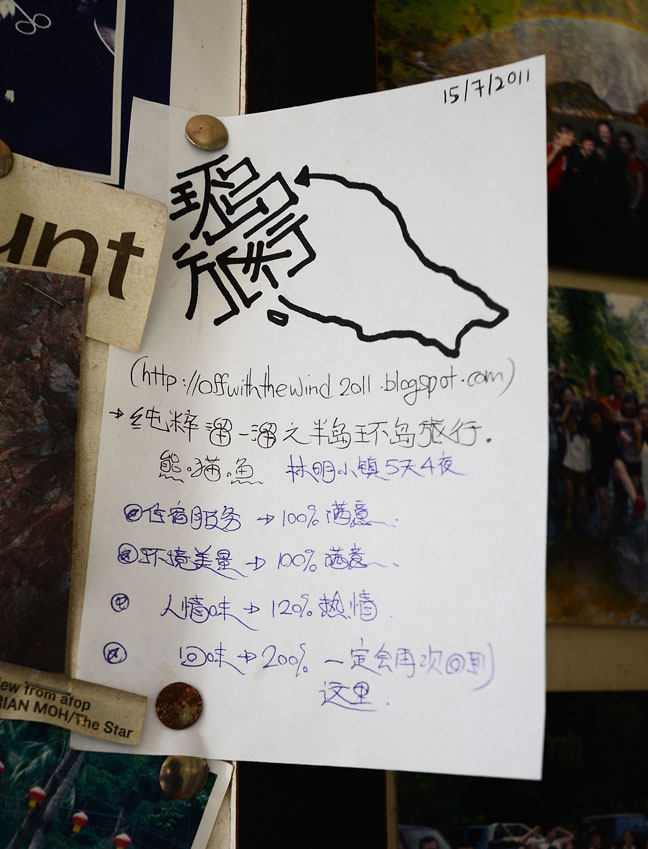 15/7/2011
环岛
旅行
(http://offwiththewind2011.blogspot.com)
→纯粹溜一溜之半岛环岛旅行.
熊·猫·鱼 林明小镇5天4夜
住宿服务 → 100% 满意
环境美景 → 100% 满意
人情味 → 120% 热情
回味 → 200% 一定会再次回到
这里.
unt
iew from atop
RIAN MOH/The Star